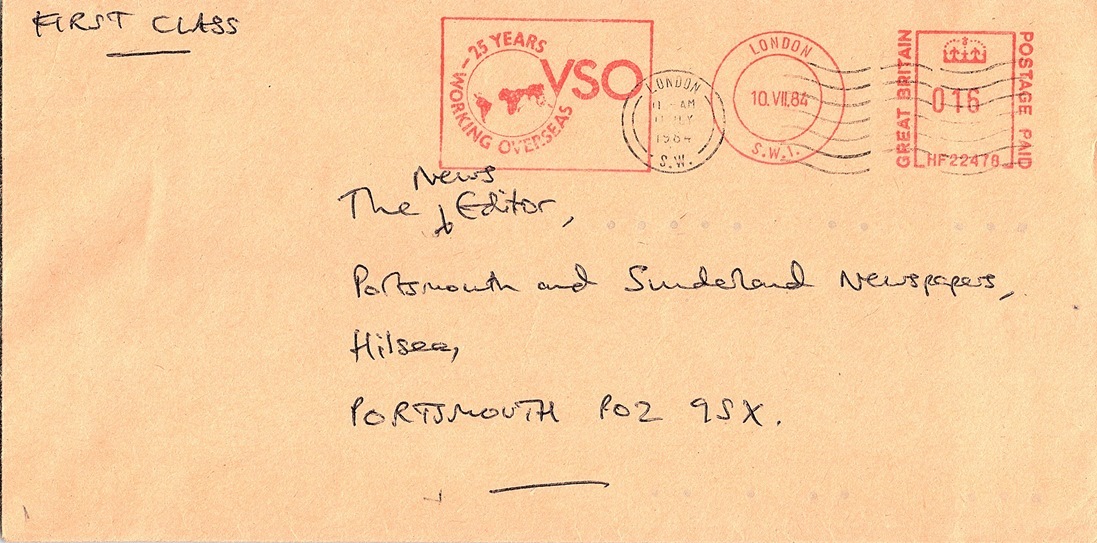 FIRST CLASS
25 YEARS
WORKING OVERSEAS
VSO
LONDON
AM
1984
S.W.
LONDON
10.VII.84
S.W.1.
GREAT BRITAIN
016
POSTAGE PAID
HF22478
News
The Editor,
Portsmouth and Sunderland Newspapers,
Hilsea,
PORTSMOUTH PO2 9SX.